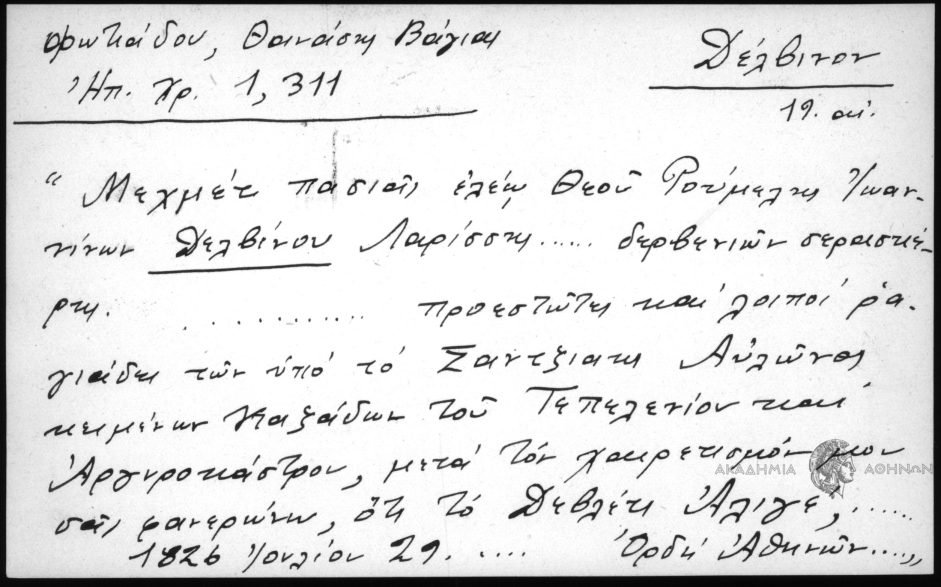 Φωτιάδου, Θανάσης Βάγιας
Ἠπ. Χρ. 1, 311
Δέλβινον
19. αἰ.
“ Μεχμέτ πασιᾶς ἐλέῳ Θεοῦ Ρούμελης Ἰωαν-
νίνων Δελβίνου Λαρίσσης ..... δερβενιῶν σερασκέ-
ρης. ........... προεστῶτες καί λοιποί ρα-
γιάδες τῶν ὑπό τό Σαντζιάκι Αὐλῶνος
κειμένων Καζάδων τοῦ Τεπελενίου καί
Ἀργυροκάστρου, μετά τόν χαιρετισμόν μου
σᾶς φανερώνω, ὅτι τό Δεβλέτι Ἀλιγέ, ......
1826 Ἰουλίου 29. .... Ὀρδί Ἀθηνῶν....„
ΑΚΑΔΗΜΙΑ ΑΘΗΝΩΝ